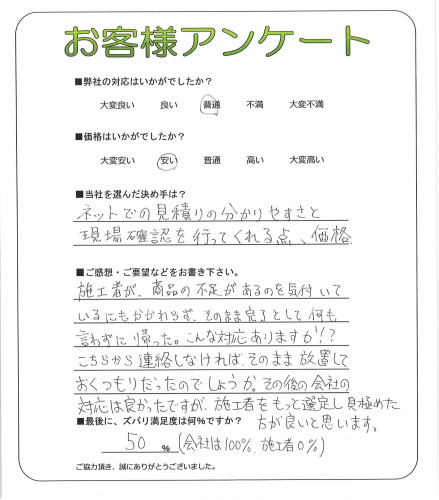 お客様アンケート
■弊社の対応はいかがでしたか？
大変良い 良い 普通 不満 大変不満
■価格はいかがでしたか？
大変安い 安い 普通 高い 大変高い
■当社を選んだ決め手は？
ネットでの見積りの分かりやすさと
現場確認を行ってくれる点、価格
■ご感想・ご要望などをお書き下さい。
施工者が、商品の不足があるのを気付いて
いるにもかかわらず、そのまま完了として何も
言わずに帰った。こんな対応ありますか!?
こちらから連絡しなければ、そのまま放置して
おくつもりだったのでしょうか。その後の会社の
対応は良かったですが、施工者をもっと選定し見極めた
方が良いと思います。
■最後に、ズバリ満足度は何％ですか？
50 % (会社は100%、施工者0%)
ご協力頂き、誠にありがとうございました。